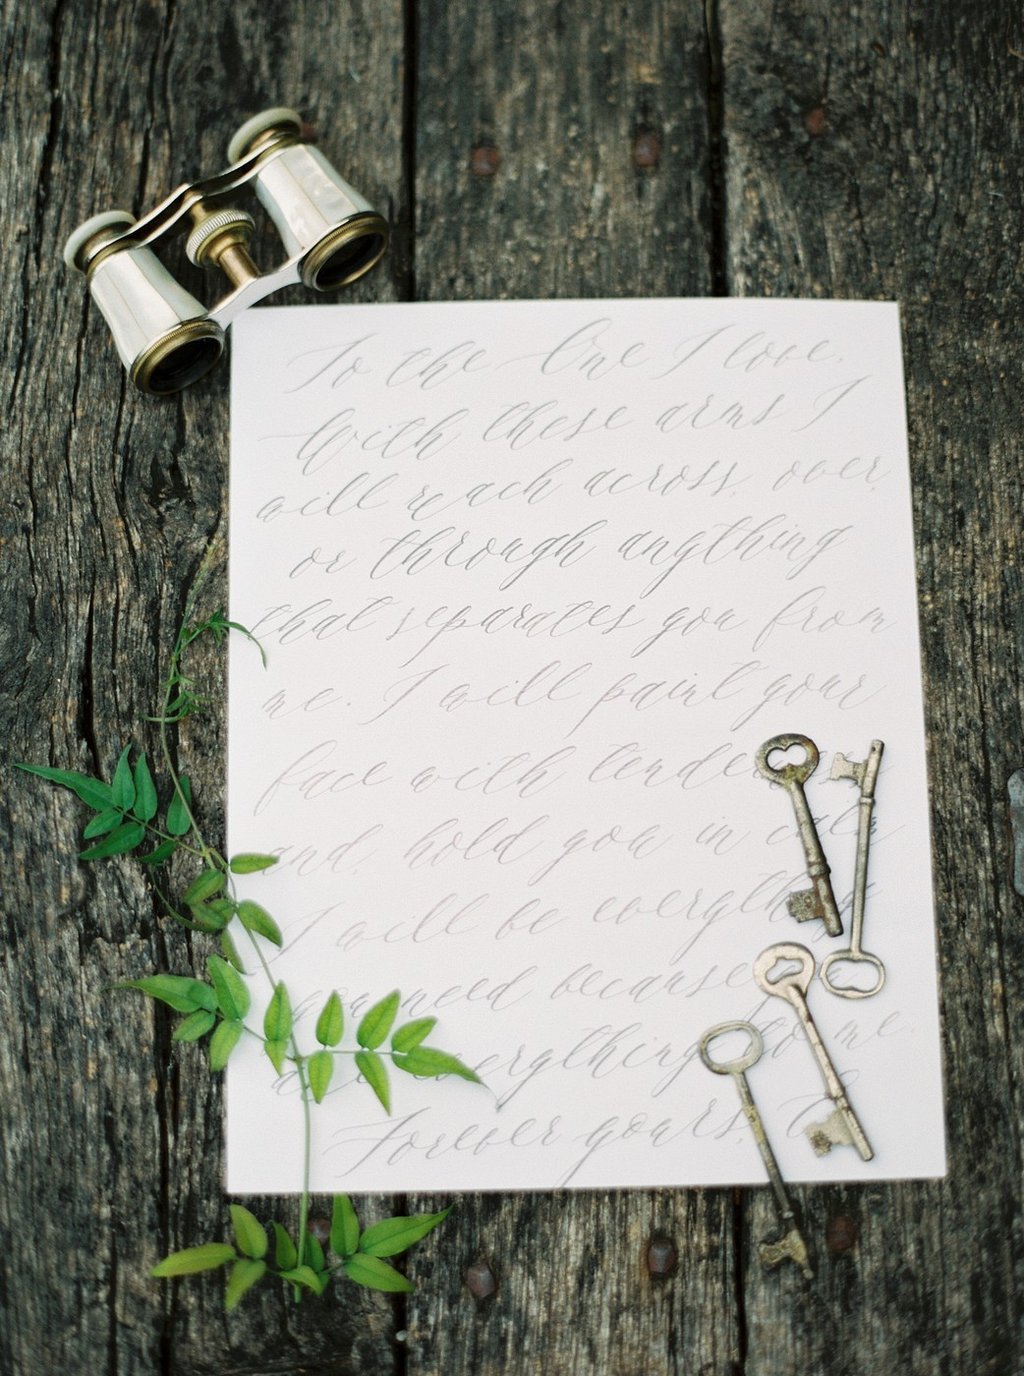 To the One I love,
With these arms I
will reach across, over,
or through anything
that separates you from
me. I will paint your
face with
and, hold you in calm
I will be everything
you need because
everything to me.
Forever yours,